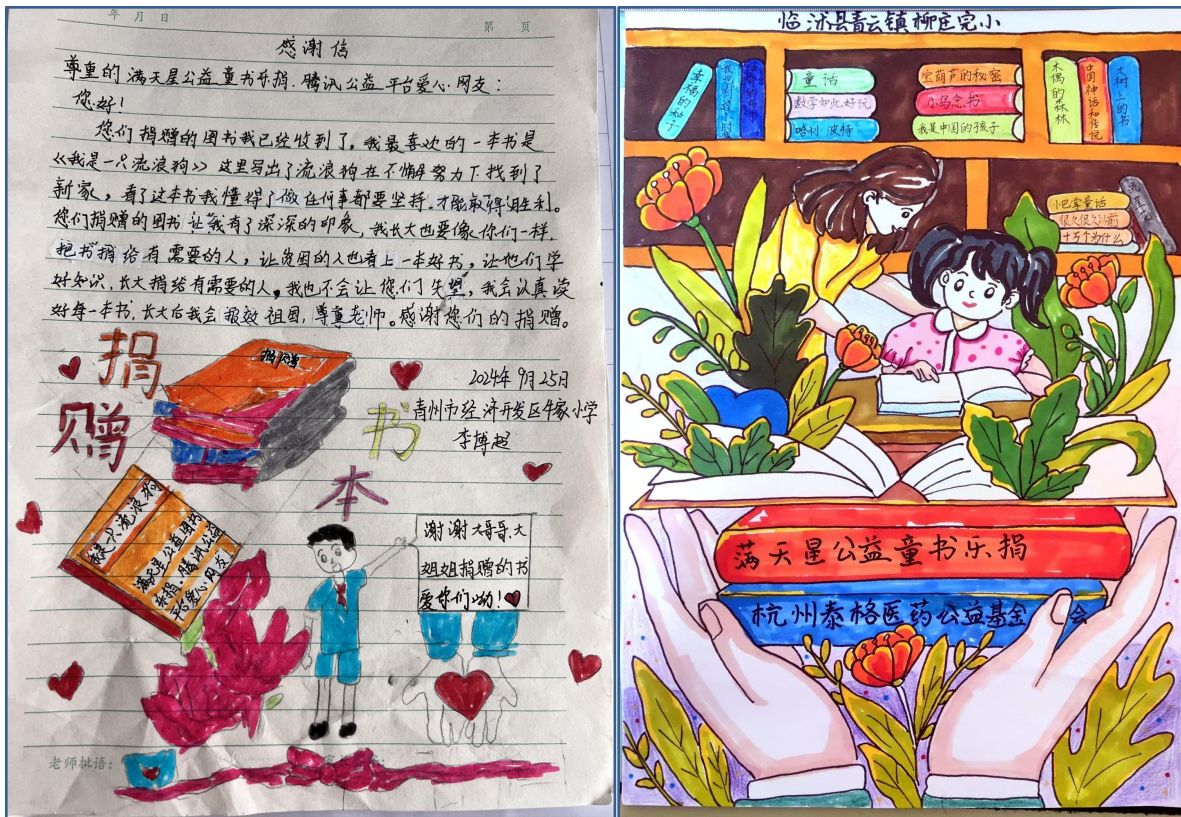 年 月 日
第 页
感谢信
尊重的满天星公益童书乐捐、腾讯公益平台爱心网友：
您好！
您们捐赠的图书我已经收到了，我最喜欢的一本书是
《我是一只流浪狗》这里写出了流浪狗在不懈努力下找到了
新家，看了这本书我懂得了做任何事都要坚持，才能取得胜利。
您们捐赠的图书让我有了深深的印象，我长大也要像你们一样，
把书捐给有需要的人，让贫困的人也看上一本好书，让他们学
好知识，长大捐给有需要的人，我也不会让您们失望，我会认真读
好每一本书，长大后我会报效祖国，尊重老师。感谢您们的捐赠。
捐赠
捐赠
书本
2024年9月25日
青州市经济开发区牛家小学
李博超
我是一只流浪狗
满天星公益童书
乐捐、腾讯公益
平台爱心网友
谢谢大哥哥、大
姐姐捐赠的书
爱你们呦！
老师批语：
临沭县青云镇柳庄完小
幸福的种子
童话
数学如此好玩
哈利·波特
宝葫芦的秘密
小鸟念书
我是中国的孩子
木偶的森林
中国神话和传说
大树上的书
小巴掌童话
很久很久以前
十万个为什么
满天星公益童书乐捐
杭州泰格医药公益基金会